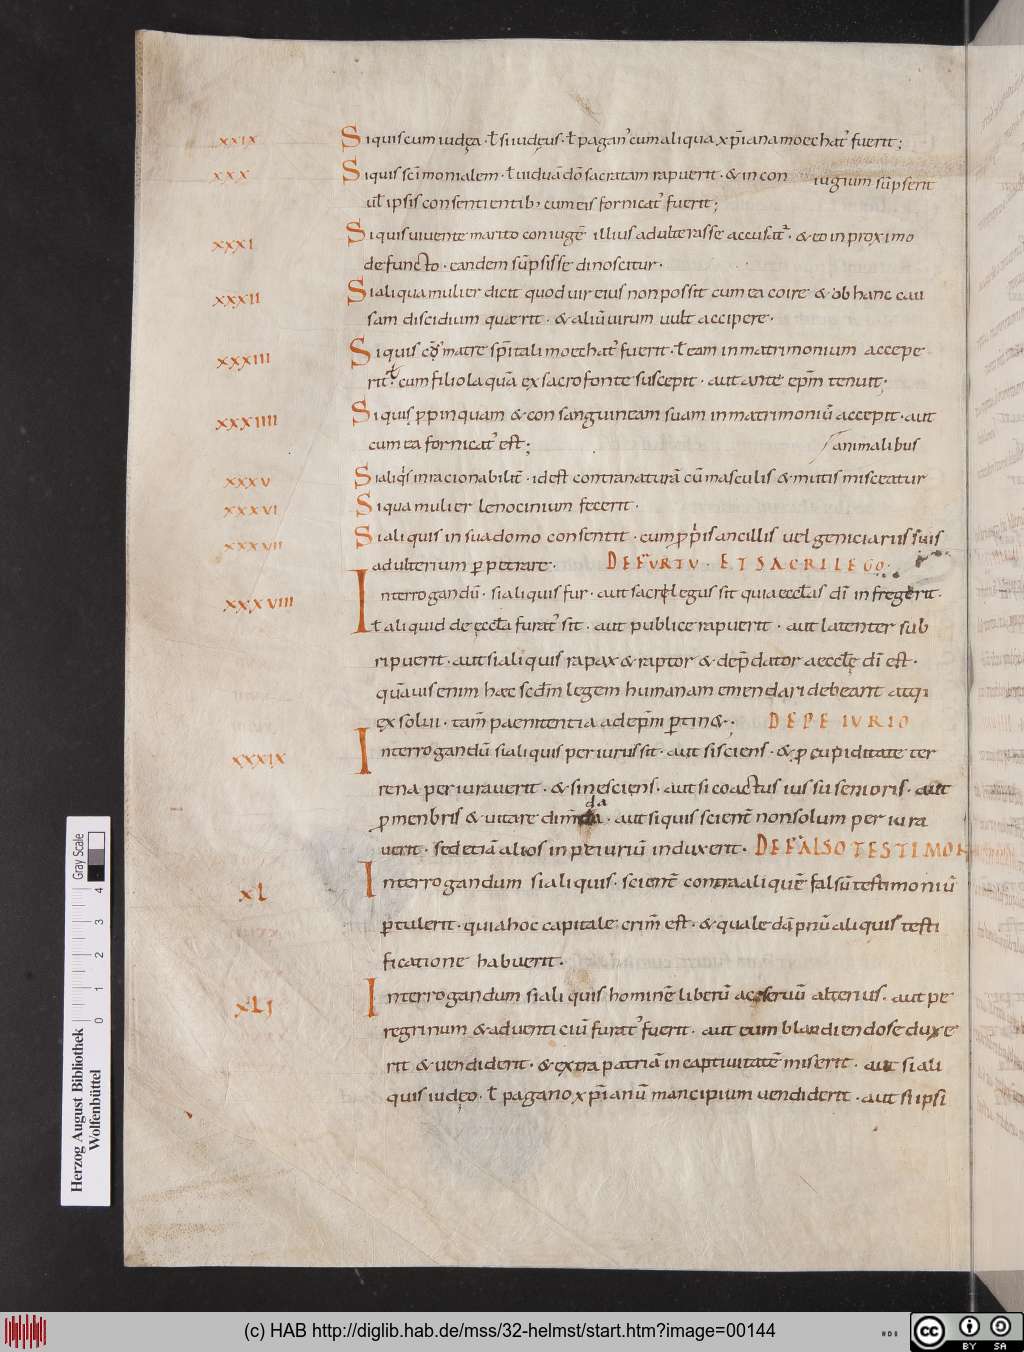 xxix Si quis cum iudęa · ł si iudęus · ł pagan᾽ cum aliqua xp̄iana moechat᾽ fuerit;
xxx Si quis scīmonialem · ł uiduā dō sacratam rapuerit · & in coniugium sūpserit
uł ipsis consentientib; cum eis fornicat᾽ fuerit;
xxxi Si quis uiuente marito coniugē illius adulterasse accusat᾽ · & eo in proximo
defuncto · eandem sūpsisse dinoscitur ·
xxxii Si aliqua mulier dicit quod uir eius non possit cum ea coire & ob hanc cau
sam discidium quærit · & aliū uirum uult accipere ·
xxxiii Si quis cū matre sp̄itali moechat᾽ fuerit · ł eam in matrimonium accepe
rit · ł cum filiola quā ex sacro fonte suscepit · aut ante ep̄m tenuit;
xxxiiii Si quis ꝓpinquam & consanguineam suam in matrimoniū accepit · aut
cum ea fornicat᾽ est; animalibus
xxxv Si aliqis inracionabilit̄ · id est contra naturā cū masculis & mutis misceatur
xxxvi Si qua mulier lenocinium fecerit ·
xxxvii Si aliquis in sua domo consentit · cum ꝓpriis ancillis uel geniciariis suis
adulterium ꝑpetrare · DE FURTU · ET SACRILEGO ·
xxxviii Interrogandū · si aliquis fur · aut sacrelegus sit qui aeccłas dī infregerit ·
ł aliquid de ęccła furat᾽ sit · aut publice rapuerit · aut latenter sub
ripuerit · aut si aliquis rapax & raptor & dep̄dator aeccłę dī est ·
quāuis enim hæc scd̄m legem humanam emendari debeant atq;
exsolui · tam̄ paenitentia ad ep̄m ꝑtin& · DE PEIURIO
xxxix Interrogandū si aliquis periurus sit · aut si sciens · & ꝓ cupiditate ter
rena periurauerit · & si nesciens · aut si coactus iussu senioris · aut
ꝓ menbris & uitare dimidada · aut si quis scient̄ non solum periura
uerit · sed etiā alios in peiuriū induxerit · DE FALSO TESTIMON
xl Interrogandum si aliquis · scient̄ contra aliquē falsū testimoniū
ꝑtulerit · quia hoc capitale crim̄ est · & quale dāpnū aliquis testi
ficatione habuerit ·
xli Interrogandum si aliquis hominē liberū ac seruū alterius · aut pe
regrinum & aduenticiū furat᾽ fuerit · aut eum blandiendo seduxe
rit & uendiderit · & extra patriā in captiuitatē miserit · aut si ali
quis iudęo · ł pagano xp̄ianū mancipium uendiderit · aut si ipsi
Herzog August Bibliothek
Wolfenbüttel
Gray Scale
0 1 2 3 4
(c) HAB http://diglib.hab.de/mss/32-helmst/start.htm?image=00144
cc BY SA